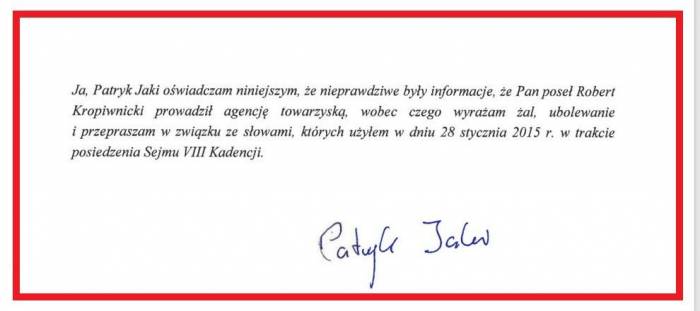 Ja, Patryk Jaki oświadczam niniejszym, że nieprawdziwe były informacje, że Pan poseł Robert
Kropiwnicki prowadził agencję towarzyską, wobec czego wyrażam żal, ubolewanie
i przepraszam w związku ze słowami, których użyłem w dniu 28 stycznia 2015 r. w trakcie
posiedzenia Sejmu VIII Kadencji.
Patryk Jaki